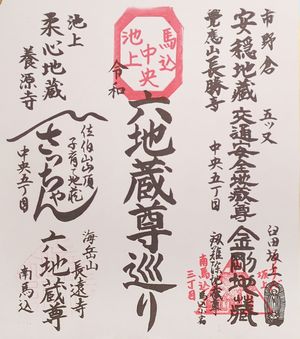 市野倉
安穏地蔵
覚應山長勝寺
五ツ又
交通安全地蔵尊
中央五丁目
臼田坂上
金剛地蔵
坂上
南馬込
三丁目
馬込
中央
池上
令和
六地蔵尊巡り
池上
柔心地蔵
養源寺
佐伯山山頂
子育て地蔵
さっちゃん
中央五丁目
海岳山
長遠寺
六地蔵尊
南馬込